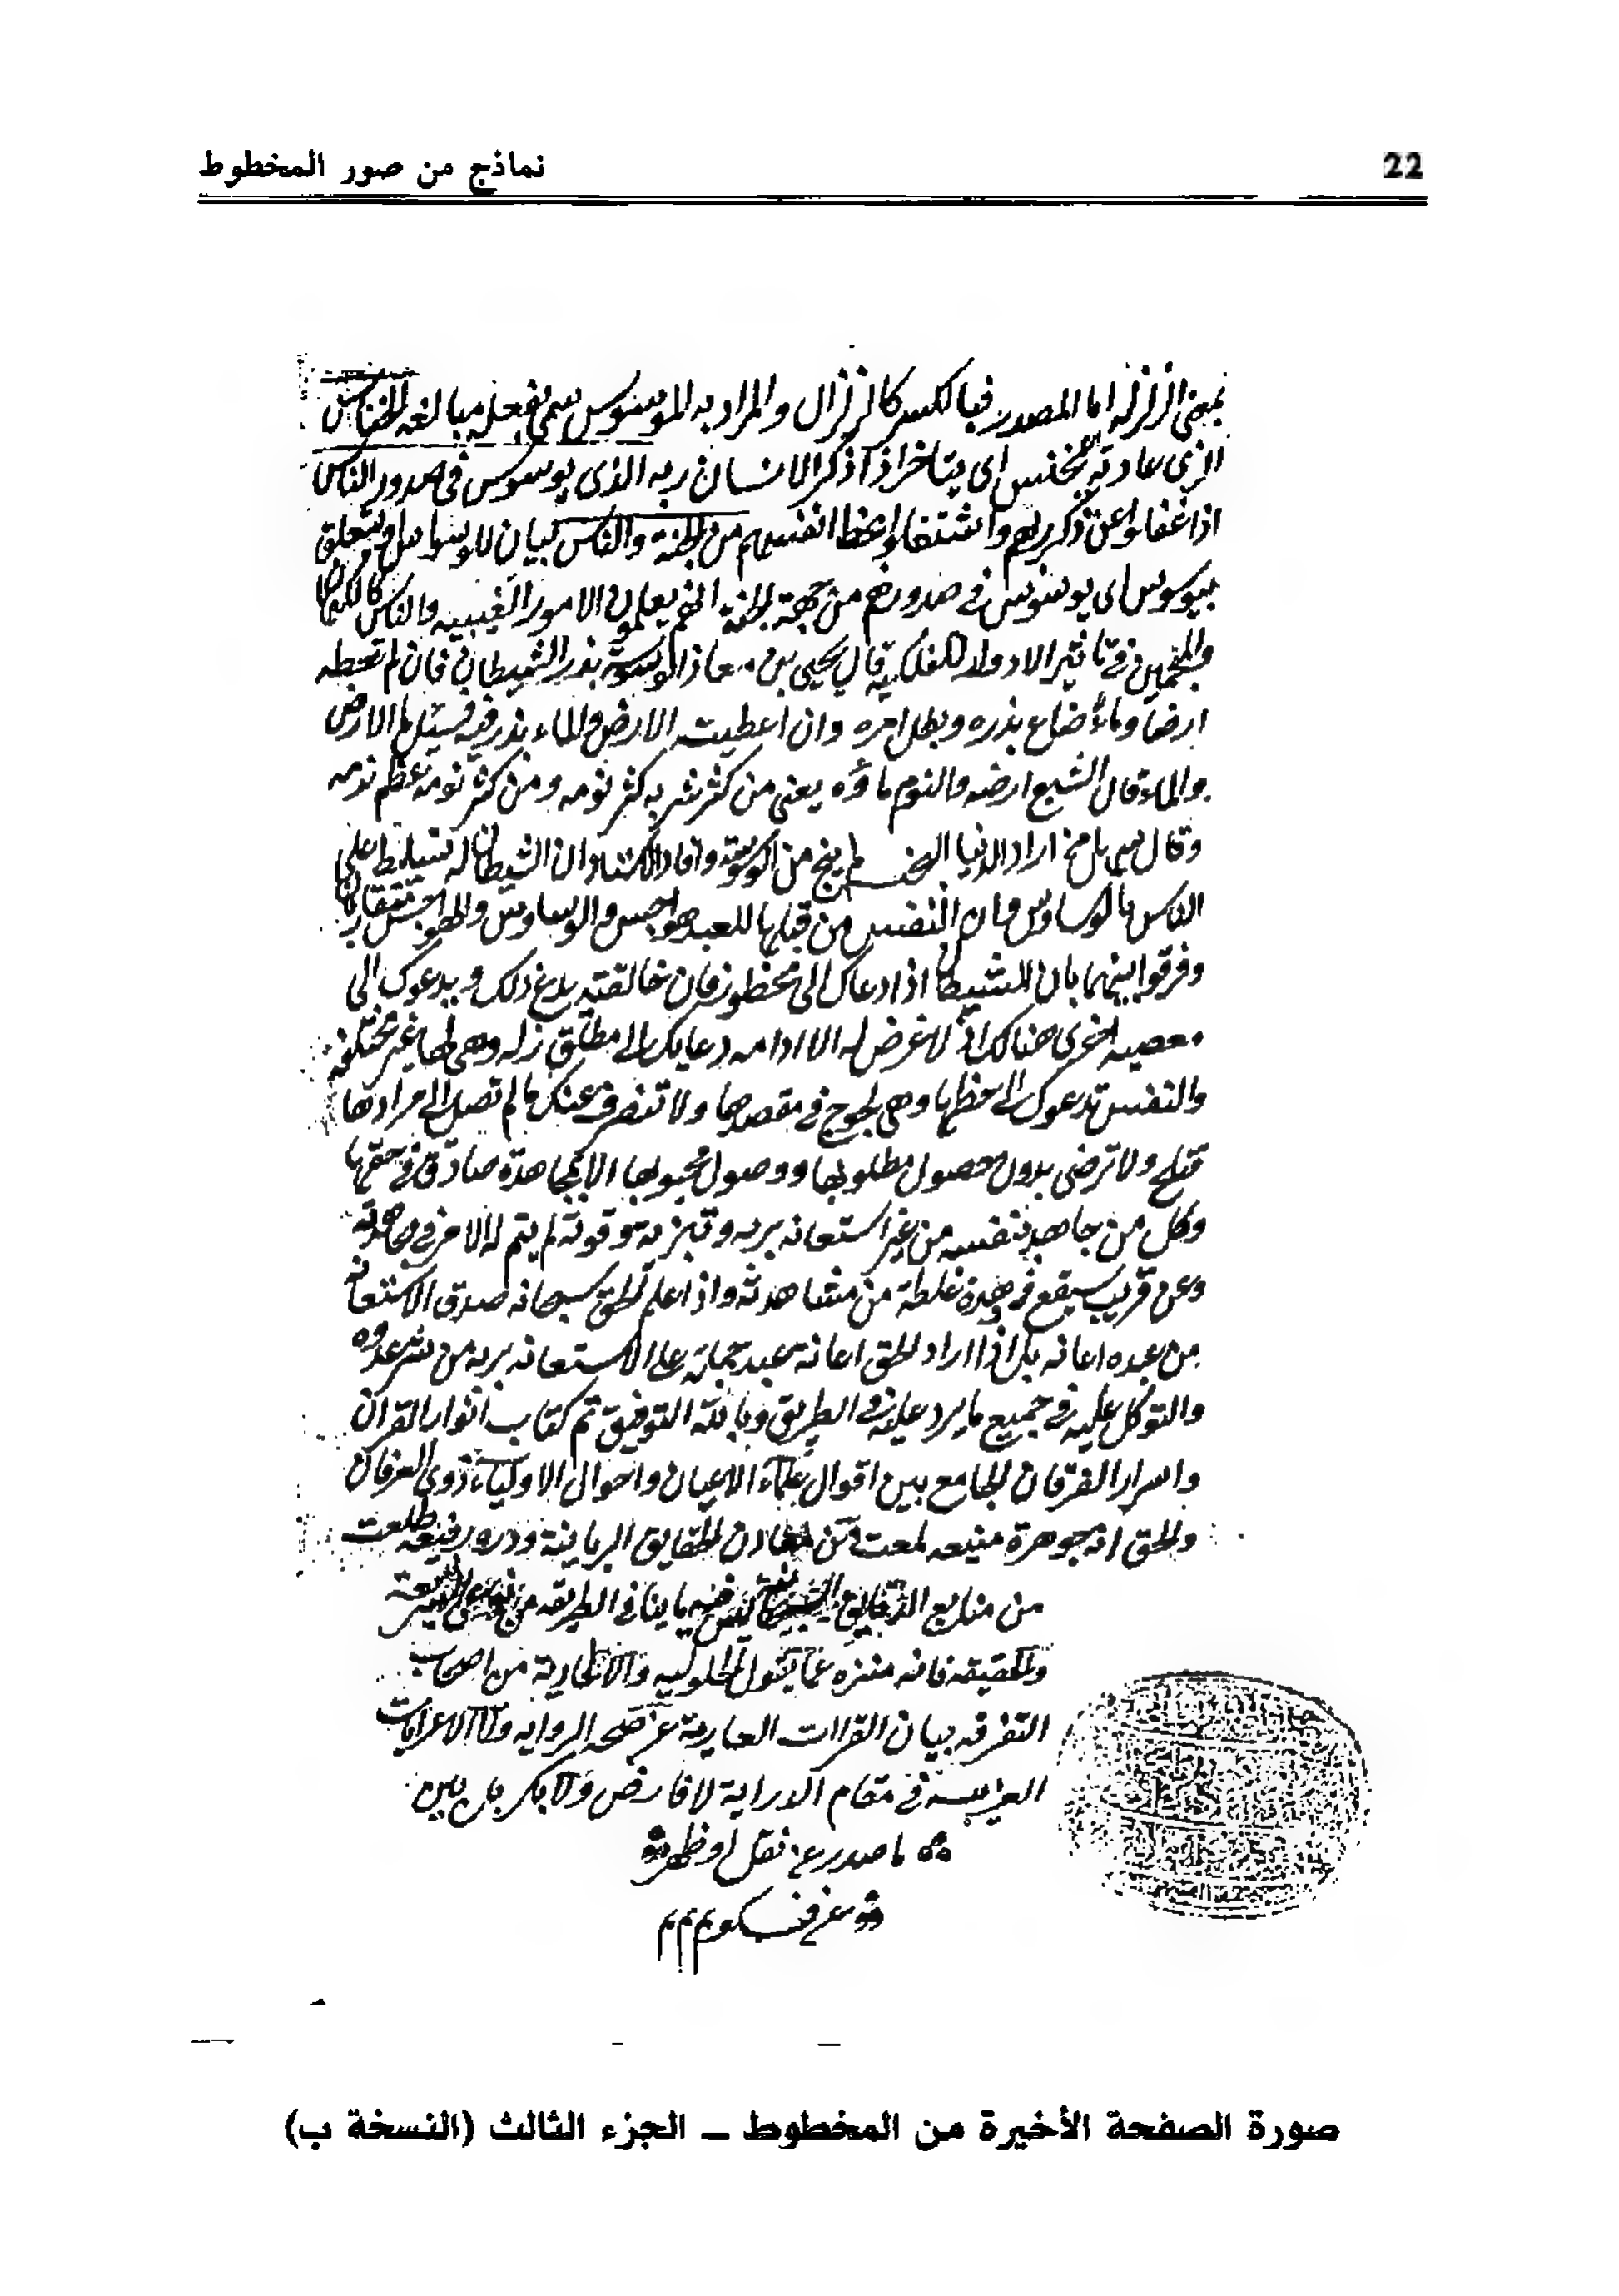 22
نماذج من صور المخطوط
بمعنى الزلزله اما المصدر فبالكسر كالزلزال والمراد به الموسوس سمى بفعله مبالغه الخناس
الذى عادته ان يخنس اى يتاخر اذا ذكر الانسان ربه الذى يوسوس فى صدور الناس
اذا غفلوا عن ذكر ربهم واشتغلوا بحظ انفسهم من الجنة والناس بيان للوسواس او متعلق
بيوسوس اى يوسوس فى صدورهم من جهة الجنة انهم يعلمون الامور الغيبيه والناس كالكهان
والمنجمين فى تاثير الادوار الفلكية قال يحيى بن معاذ الوسوسة بذر الشيطان فان لم تعطه
ارضا وماء ضاع بذره وبطل امره وان اعطيت الارض والماء بذر فيه فسئل ما الارض
والماء قال الشبع ارضه والنوم ماؤه يعنى من كثر شربه كثر نومه ومن كثر نومه عظم ندمه
وقال سهل من اراد الدنيا لم ينج من الوسوسة وافاد الاستاد ان الشيطان له تسليط على
الناس بالوساوس وان النفس من قبلها للعبد هواجس والوساوس والهواجس
وفرقوا بينهما بان الشيطان اذا دعاك الى محظور فان خالفته يدع ذلك ويدعوك الى
معصيه اخرى هنالك اذ لا غرض له الا ادامه دعايك الى مطلق زله وهى لها غير مختلفة
والنفس تدعوك الى حظها وهى لجوج فى مقصدها ولا تنصرف عنك ما لم تصل الى مرادها
ولا ترضى بدون حصول مطلوبها ووصول محبوبها الا بمجاهدة صادق فى حقها
وكل من جاهد نفسه من غير استعانه بربه وتبر من قوته لم يتم له الامر فى مجاهدته
وعن قريب سيقع فى وهدة غلطة من مشاهدته واذا علم الحق سبحانه صدق الاستعانه
من عبده اعانه بل اذا اراد الحق اعانة عبد حمله على الاستعانه بربه من شر عدوه
والتوكل عليه فى جميع ما يرد عليه فى الطريق وبالله التوفيق تم كتاب انوار القران
واسرار الفرقان الجامع بين اقوال علماء الاعيان واحوال الاولياء ذوى العرفان
والحق انه جوهرة منيعه لمعت من معادن الحقايق الربانية ودره رفيعه طلعت
من منابع الدقايق ليس فيه ما ينافى الطريقه من الشريعة
والحقيقه فانه منزه عما يقول الحلوليه والاتحادية من اصحاب
التفرقه بيان القراات العارية عن صحه الروايه والاعرابات
الغريبه فى مقام الدراية لا فارض ولا بكر بل بين
ما صدر عن نقل او ظهر
عن فكر
صورة الصفحة الأخيرة من المخطوط ــ الجزء الثالث (النسخة ب)